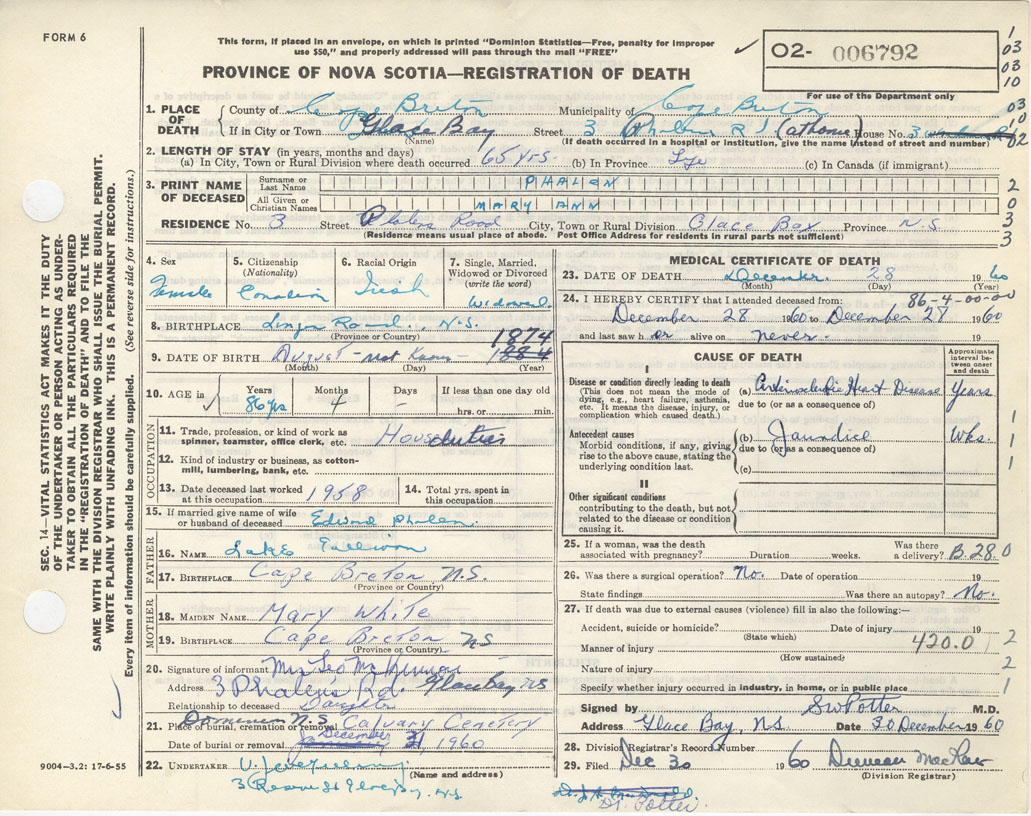 FORM 6
This form, if placed in an envelope, on which is printed "Dominion Statistics—Free, penalty for improper
use $50," and properly addressed will pass through the mail "FREE"
✓ O2- 006792
For use of the Department only
PROVINCE OF NOVA SCOTIA—REGISTRATION OF DEATH
1
03
03
10
03
10
02
1. PLACE OF DEATH
County of Cape Breton Municipality of Cape Breton
If in City or Town Glace Bay Street 3 Phalen Rd (at home) House No. 3
(Name) (If death occurred in a hospital or institution, give the name instead of street and number)
2. LENGTH OF STAY (in years, months and days)
(a) In City, Town or Rural Division where death occurred 65 yrs. (b) In Province Life (c) In Canada (if immigrant)
3. PRINT NAME OF DECEASED
Surname or Last Name PHALEN
All Given or Christian Names MARY ANN
2
0
3
3
RESIDENCE No. 3 Street Phalen Road City, Town or Rural Division Glace Bay Province N.S.
(Residence means usual place of abode. Post Office Address for residents in rural parts not sufficient)
4. Sex
Female
5. Citizenship
(Nationality)
Canadian
6. Racial Origin
Irish
7. Single, Married,
Widowed or Divorced
(write the word)
Widowed
8. BIRTHPLACE Lingan Road, N.S.
(Province or Country)
9. DATE OF BIRTH August - not Known - 1884 1874
(Month) (Day) (Year)
10. AGE in ✓
Years Months Days If less than one day old
86 yrs 4 - hrs. or min.
OCCUPATION
11. Trade, profession or kind of work as
spinner, teamster, office clerk, etc. Houseduties
12. Kind of industry or business, as cotton-
mill, lumbering, bank, etc.
13. Date deceased last worked
at this occupation 1958
14. Total yrs. spent in
this occupation
15. If married give name of wife
or husband of deceased Edward Phalen
FATHER
16. NAME
17. BIRTHPLACE Cape Breton N.S.
(Province or Country)
MOTHER
18. MAIDEN NAME Mary White
19. BIRTHPLACE Cape Breton NS
(Province or Country)
20. Signature of informant Mrs Leo
Address 3 Phalen's Rd. Glace Bay NS
Relationship to deceased Daughter
21. Place of burial, cremation or removal Dominion N.S. Calvary Cemetery
Date of burial or removal January December 31, 1960
22. UNDERTAKER
(Name and address)
3 Reserve St Glace Bay, N.S.
MEDICAL CERTIFICATE OF DEATH
23. DATE OF DEATH December 28 1960
(Month) (Day) (Year)
24. I HEREBY CERTIFY that I attended deceased from: 86-4-00-00
December 28 1960 to December 28 1960
and last saw h er alive on never. 19
CAUSE OF DEATH
Approximate
interval between
onset
and death
I
Disease or condition directly leading to death
(This does not mean the mode of
dying, e.g., heart failure, asthenia,
etc. It means the disease, injury, or
complication which caused death.)
(a) Arteriosclerotic Heart Disease Years
due to (or as a consequence of)
Antecedent causes
Morbid conditions, if any, giving
rise to the above cause, stating the
underlying condition last.
(b) Jaundice Wks.
due to (or as a consequence of)
(c)
1
1
1
II
Other significant conditions
contributing to the death, but not
related to the disease or condition
causing it.
25. If a woman, was the death
associated with pregnancy? Duration weeks. Was there
a delivery? B.28.0
26. Was there a surgical operation? No. Date of operation 19
State findings Was there an autopsy? No.
27. If death was due to external causes (violence) fill in also the following:—
Accident, suicide or homicide? Date of injury 19
(State which)
Manner of injury 420.0
(How sustained)
Nature of injury
Specify whether injury occurred in industry, in home, or in public place
2
2
1
Signed by SW Potter M.D.
Address Glace Bay, N.S. Date 30 December 1960
28. Division Registrar's Record Number
29. Filed Dec 30 1960 Duncan
(Division Registrar)
Dr. Potter.
SEC. 14—VITAL STATISTICS ACT MAKES IT THE DUTY
OF THE UNDERTAKER OR PERSON ACTING AS UNDER-
TAKER TO OBTAIN ALL THE PARTICULARS REQUIRED
IN THE "REGISTRATION OF DEATH" AND TO FILE THE
SAME WITH THE DIVISION REGISTRAR WHO SHALL ISSUE THE BURIAL PERMIT.
WRITE PLAINLY WITH UNFADING INK. THIS IS A PERMANENT RECORD.
Every item of information should be carefully supplied. (See reverse side for instructions.)
9004—3.2: 17-6-55